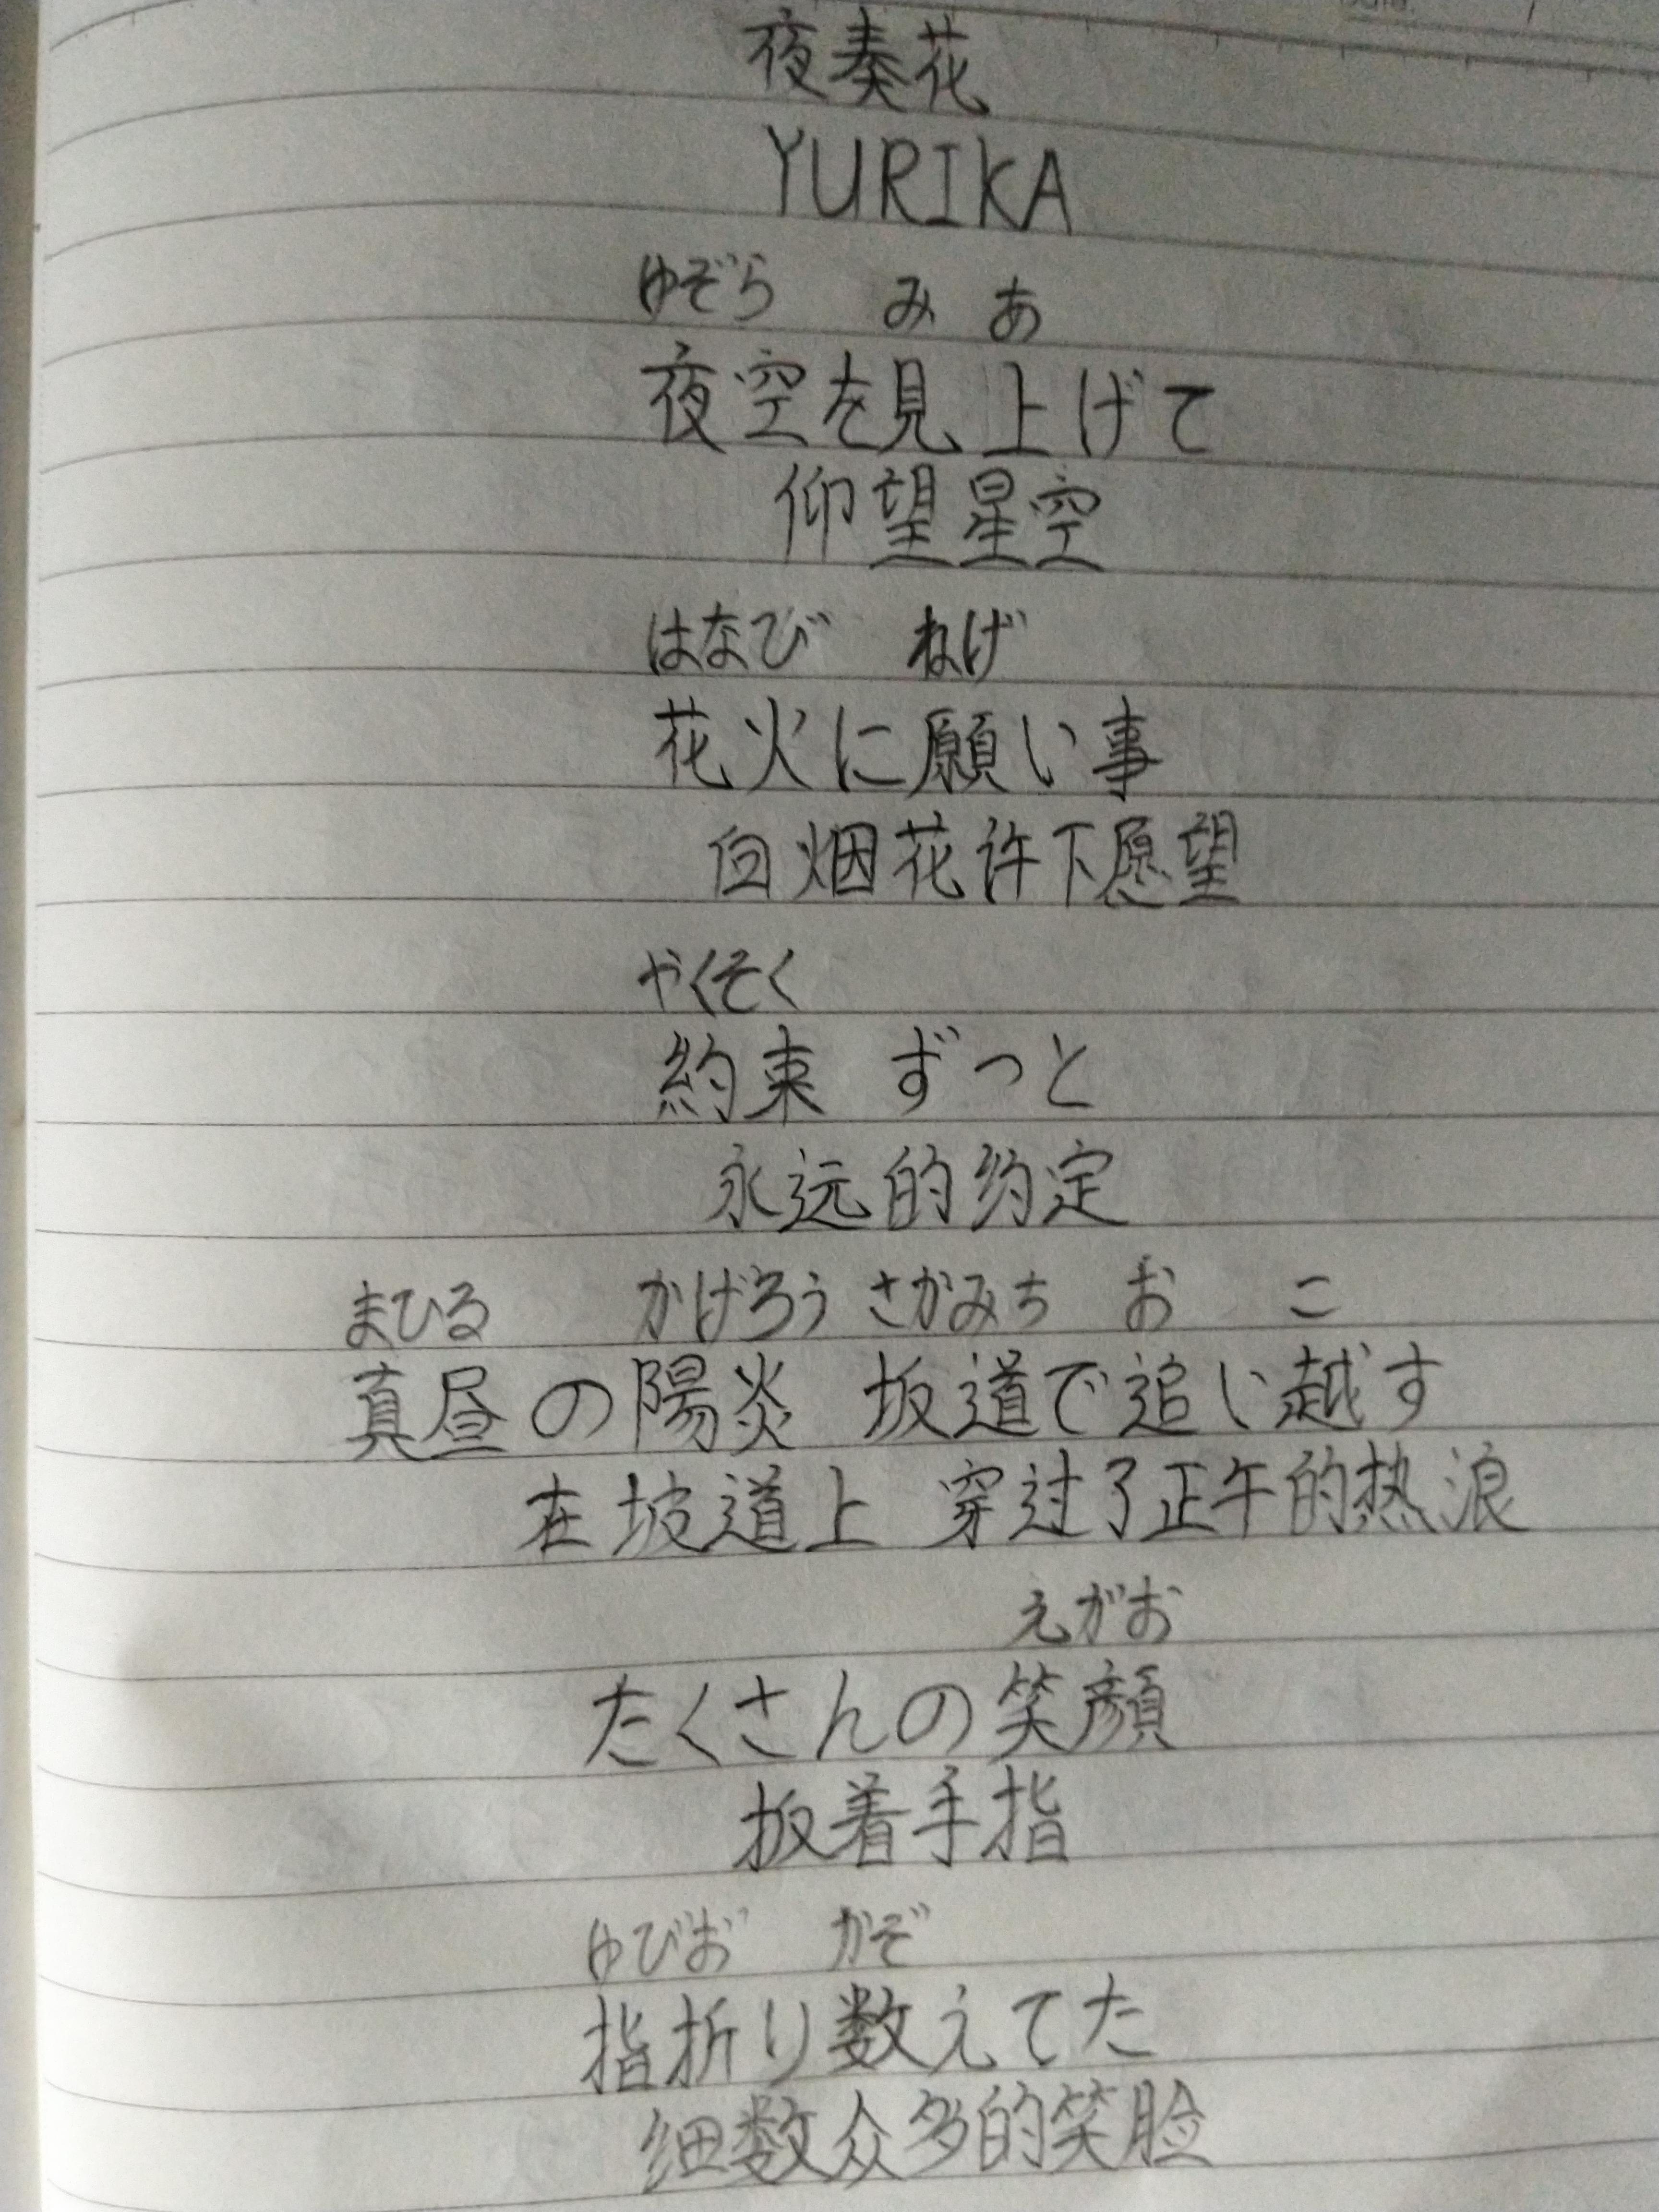 夜奏花
YURIKA
ゆぞら み あ
夜空を見上げて
仰望星空
はなび ねげ
花火に願い事
向烟花许下愿望
やくそく
約束 ずっと
永远的约定
まひる かげろう さかみち お こ
真昼の陽炎 坂道で追い越す
在坡道上 穿过了正午的热浪
えがお
たくさんの笑顔
扳着手指
ゆびお かぞ
指折り数えてた
细数众多的笑脸